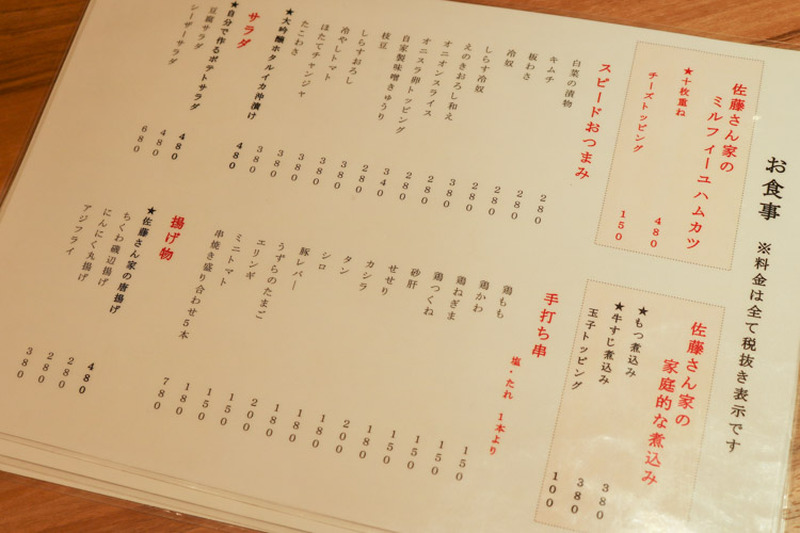 お食事 ※料金は全て税抜き表示です
佐藤さん家の
ミルフィーユハムカツ
★十枚重ね 480
チーズトッピング 150
佐藤さん家の
家庭的な煮込み
★もつ煮込み 380
★牛すじ煮込み 380
玉子トッピング 100
スピードおつまみ
白菜の漬物 280
キムチ 280
板わさ 280
冷奴 280
しらす冷奴 380
えのきおろし和え 280
オニオンスライス 280
オニスラ卵トッピング 340
自家製味噌きゅうり 280
枝豆 380
しらすおろし 380
冷やしトマト 380
ほたてチャンジャ 380
たこわさ 380
★大吟醸ホタルイカ沖漬け 480
サラダ
★自分で作るポテトサラダ 480
豆腐サラダ 480
シーザーサラダ 680
手打ち串 塩・たれ 1本より
鶏もも 150
鶏かわ 150
鶏ねぎま 150
鶏つくね 150
砂肝 180
せせり 200
カシラ 150
タン 180
シロ 180
豚レバー 200
うずらのたまご 150
エリンギ 150
ミニトマト 180
串焼き盛り合わせ5本 780
揚げ物
★佐藤さん家の唐揚げ 480
ちくわ磯辺揚げ 280
にんにく丸揚げ 280
アジフライ 380